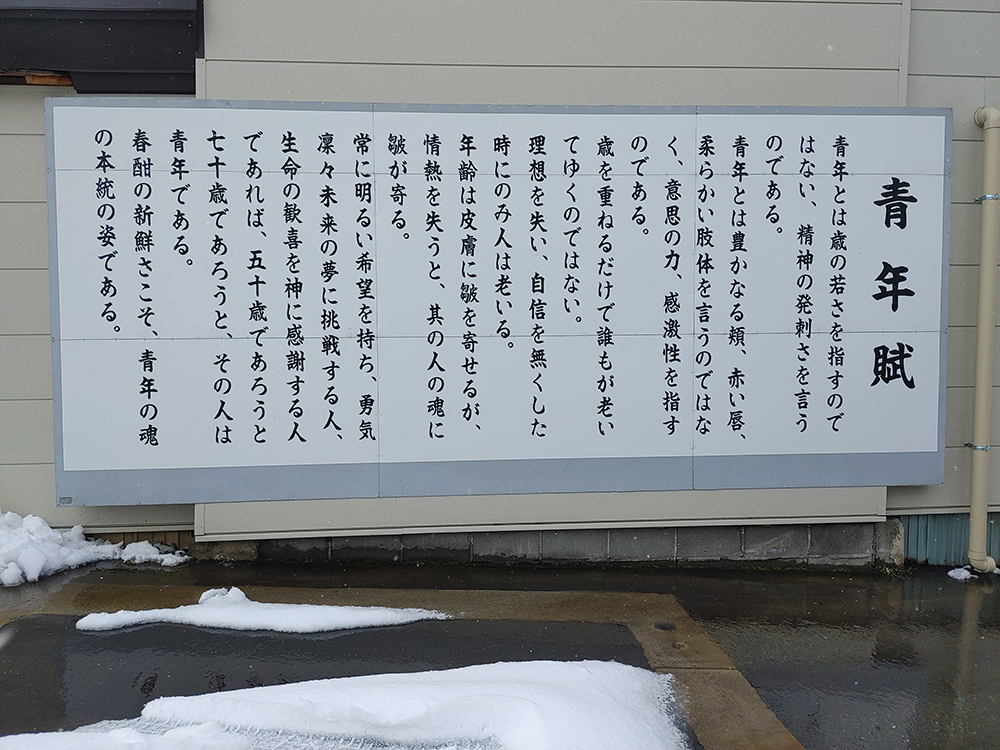 青年賦
青年とは歳の若さを指すので
はない、精神の発刺さを言う
のである。
青年とは豊かなる頬、赤い唇、
柔らかい肢体を言うのではな
く、意思の力、感激性を指す
のである。
歳を重ねるだけで誰もが老い
てゆくのではない。
理想を失い、自信を無くした
時にのみ人は老いる。
年齢は皮膚に皺を寄せるが、
情熱を失うと、其の人の魂に
皺が寄る。
常に明るい希望を持ち、勇気
凜々未来の夢に挑戦する人、
生命の歓喜を神に感謝する人
であれば、五十歳であろうと
七十歳であろうと、その人は
青年である。
春酣の新鮮さこそ、青年の魂
の本統の姿である。